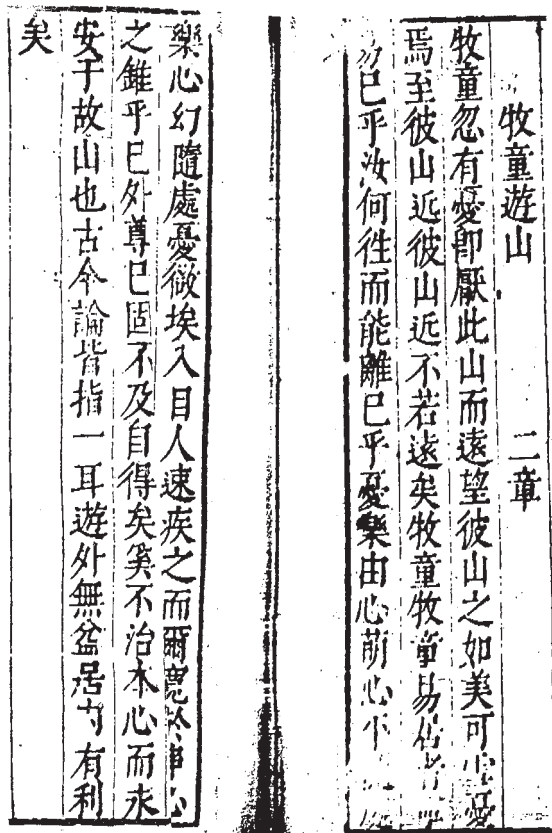 牧童遊山 二章
牧童忽有憂即厭此山而遠望彼山之如美可雪憂
焉至彼山近彼山近不若遠矣牧童牧童易居者
易己乎汝何徃而能離己乎憂樂由心萌心平
樂心幻隨處憂微埃入目人速疾之而爾寬於串心
之錐乎己外尊己固不及自得矣奚不治本心而永
安于故山也古今論皆指一耳遊外無益居內有利
矣